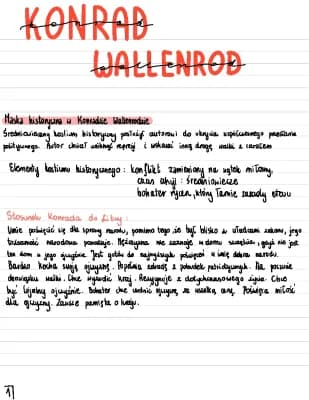 KONRAD
konrad
WALLENROD
wallenrod
Maska historyczna w Konradzie Wallenrodzie
Średniowieczny kostium historyczny posłużył autorowi do ukrycia współczesnego przesłania
politycznego. Autor chciał uniknąć represji i wskazać inną drogę walki z caratem
Elementy kostiumu historycznego: konflikt zamieniony na wątek miłosny,
czas akcji: średniowiecze
bohater rycerz, który łamie zasady etosu
Stosunek Konrada do Litwy:
Umie poświęcić się dla sprawy narodu, pomimo tego że był blisko w układzie zakonu, jego
tożsamość narodowa pozostaje. Mężczyzna nie zaznaje w domu szczęścia, gdyż nie jest
ten dom w jego ojczyźnie. Jest gotów do największych poświęceń w imię dobra narodu.
Bardzo kocha swoją ojczyznę. Popełnia zdradę z pobudek patriotycznych. Ma poczucie
obowiązku walki. Chce wyzwolić kraj. Rezygnuje z dotychczasowego życia. Chce
być lojalny ojczyźnie. Bohater chce uwolnić ojczyznę za wszelką cenę. Poświęca miłość
dla ojczyzny. Zawsze pamięta o kraju.
1)